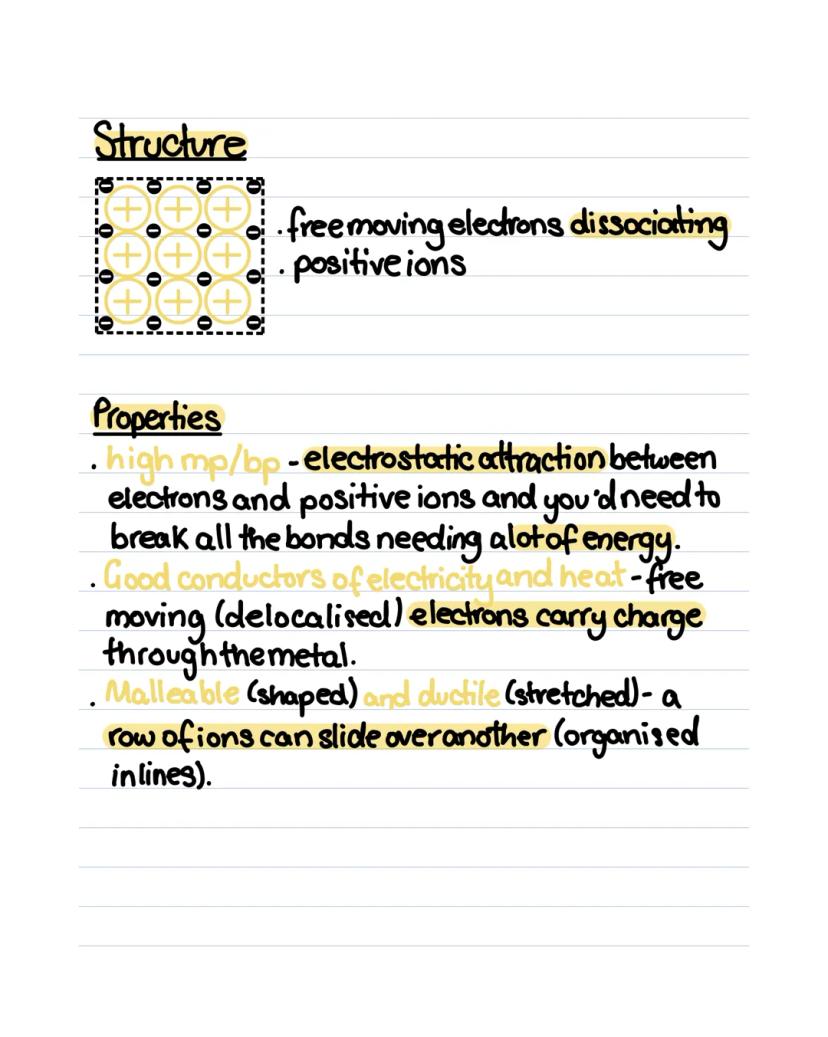 Structure
. free moving electrons dissociating
. positive ions
Properties
. high mp/bp - electrostatic attraction between
electrons and positive ions and you'd need to
break all the bonds needing a lot of energy.
. Good conductors of electricity and heat - free
moving (delocalised) electrons carry charge
through the metal.
. Malleable (shaped) and ductile (stretched) - a
row of ions can slide over another (organised
in lines).